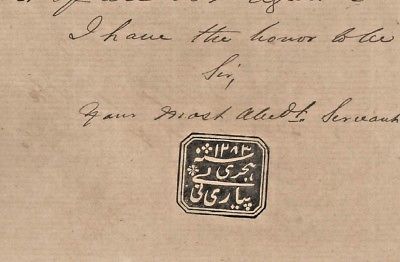 I have the honor to be
Sir,
Your Most Obedt. Servant
۱۲۸۳
سنه
هجری
پیاری بی بی